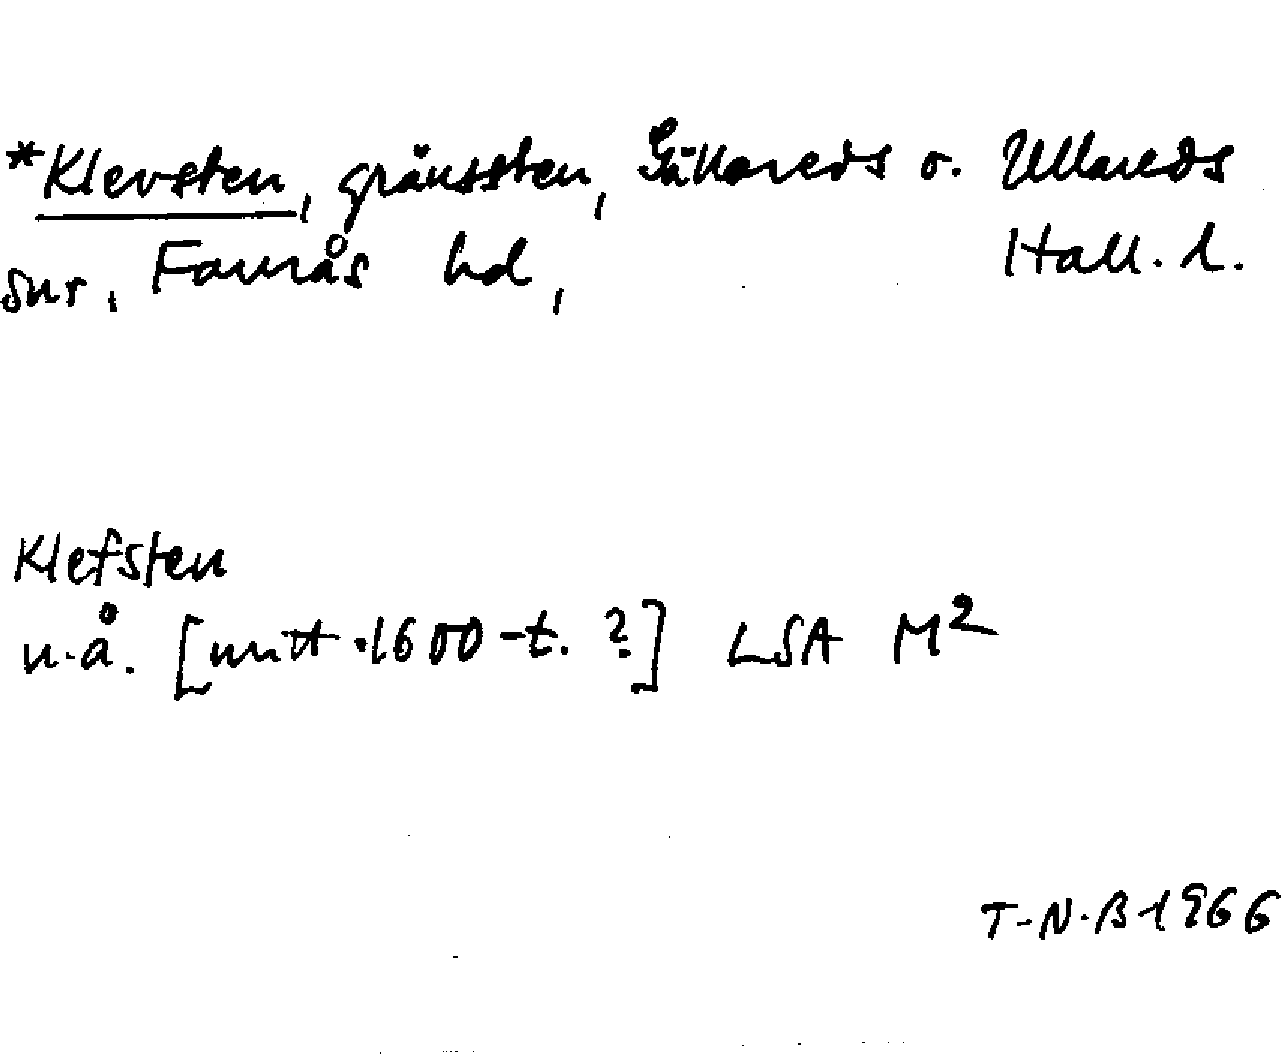 *Klevsten, gränssten, Gällareds o. Ullareds
snr, Faurås hd, Hall. l.
Klefsten
u.å. [mitt. 1600-t. ?] LSA M²
T-N.B 1966